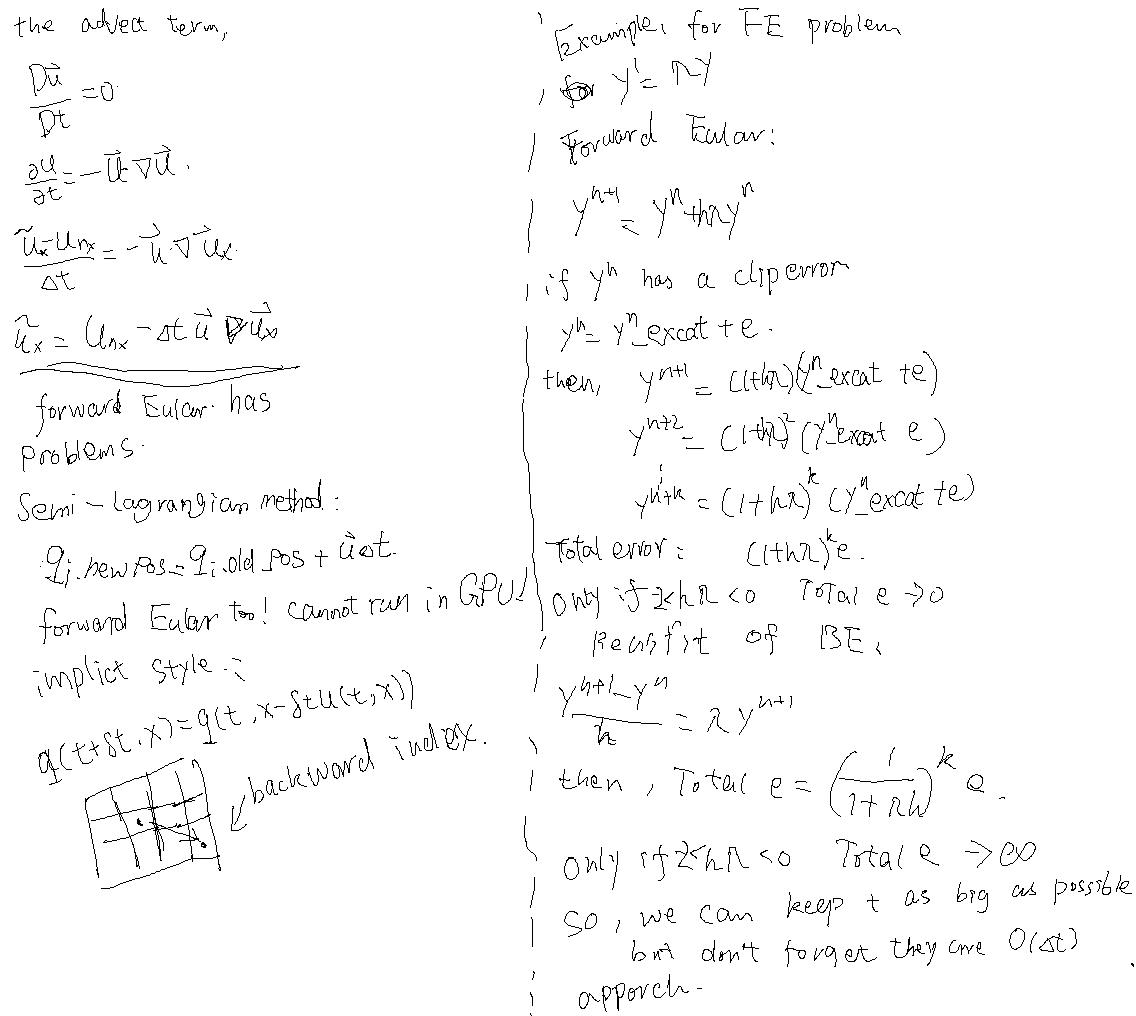 the advect term,
Du⃗/Dt = 0
∂u/∂t = -u⃗·∇u⃗.
(ũx - unx)/Δt = -u⃗·∇u⃗x.
ũx = Unx - Δt u⃗ ∇u⃗x
forward Eular has
problems.
Semi-Lagrangian method:
qi.newpos = qi.old pos + u⃗Δt.
forward Eular too! cannot run in GPU!
implict style:
q(t+δt, x) = q(t, x-δtu(t,x))
backward index.
Example, for FE problem
for y' = λy
Forward Eular:
yⁿ⁺¹ = yⁿ+hλyⁿ
if yⁿ has a clip error
yⁿ = yⁿ_excat + e.
then, yⁿ⁺¹ = (1+hλ)(yⁿ_excat +e)
yⁿ⁺² = (1+hλ)²(yⁿ_excat e)
yⁿ⁺ᵏ = (1+hλ)ᵏ (yⁿ_excat +e)
Total error: (1+hλ)ᵏe.
Only if 2<hλ<0 Total e →0
of BE,
(yⁿ⁺¹-yⁿ)/h = λyⁿ⁺¹
then, Total e = (1/(1+λh))ᵏ e.
Only if 2<hλ<0 Total e →∞
So, we can keep t as big as possible
but don't forget they are O(Δt)
apporch.